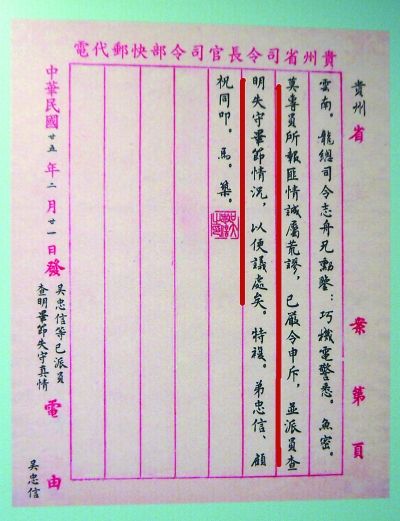 貴州省司令長官司令部快郵代電
貴州省 案第 頁
雲南。龍總司令志舟兄勳鑒：巧機電警悉。魚密。
莫專員所報匪情誠屬荒謬，已嚴令申斥，並派員查
明失守畢節情況，以便議處矣。特複。弟忠信、顧
祝同叩。馬。築。
中華民國廿五年二月廿一日發 電 由
吳忠信等已派員
查明畢節失守真情
吳忠信